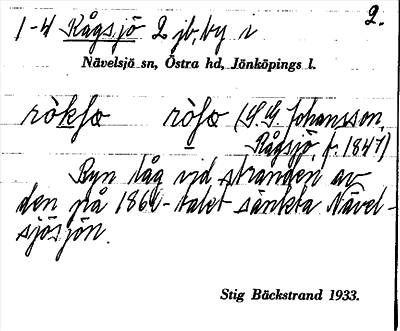 2.
1-4 Rågsjö 2 jb, by i
Nävelsjö sn, Östra hd, Jönköpings l.
ròksə ròsə (S. G. Johansson,
Rågsjö, f. 1847)
Byn låg vid stranden av
den på 1860-talet sänkta Nävel-
sjösjön.
Stig Bäckstrand 1933.